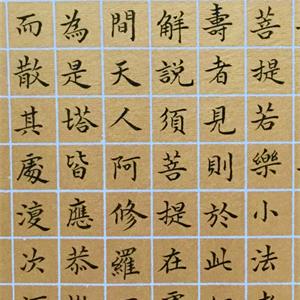 菩提若樂小法
壽者見則於此
解說須菩提在
間天人阿修羅
為是塔皆應恭
而散其處復次